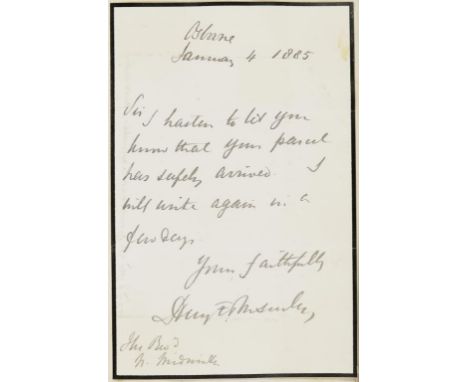 Osborne
January 4 1885
Sir I hasten to let you
know that your parcel
has safely arrived. I
will write again in a
few days.
Yours faithfully
Henry F. Ponsonby
The Revd